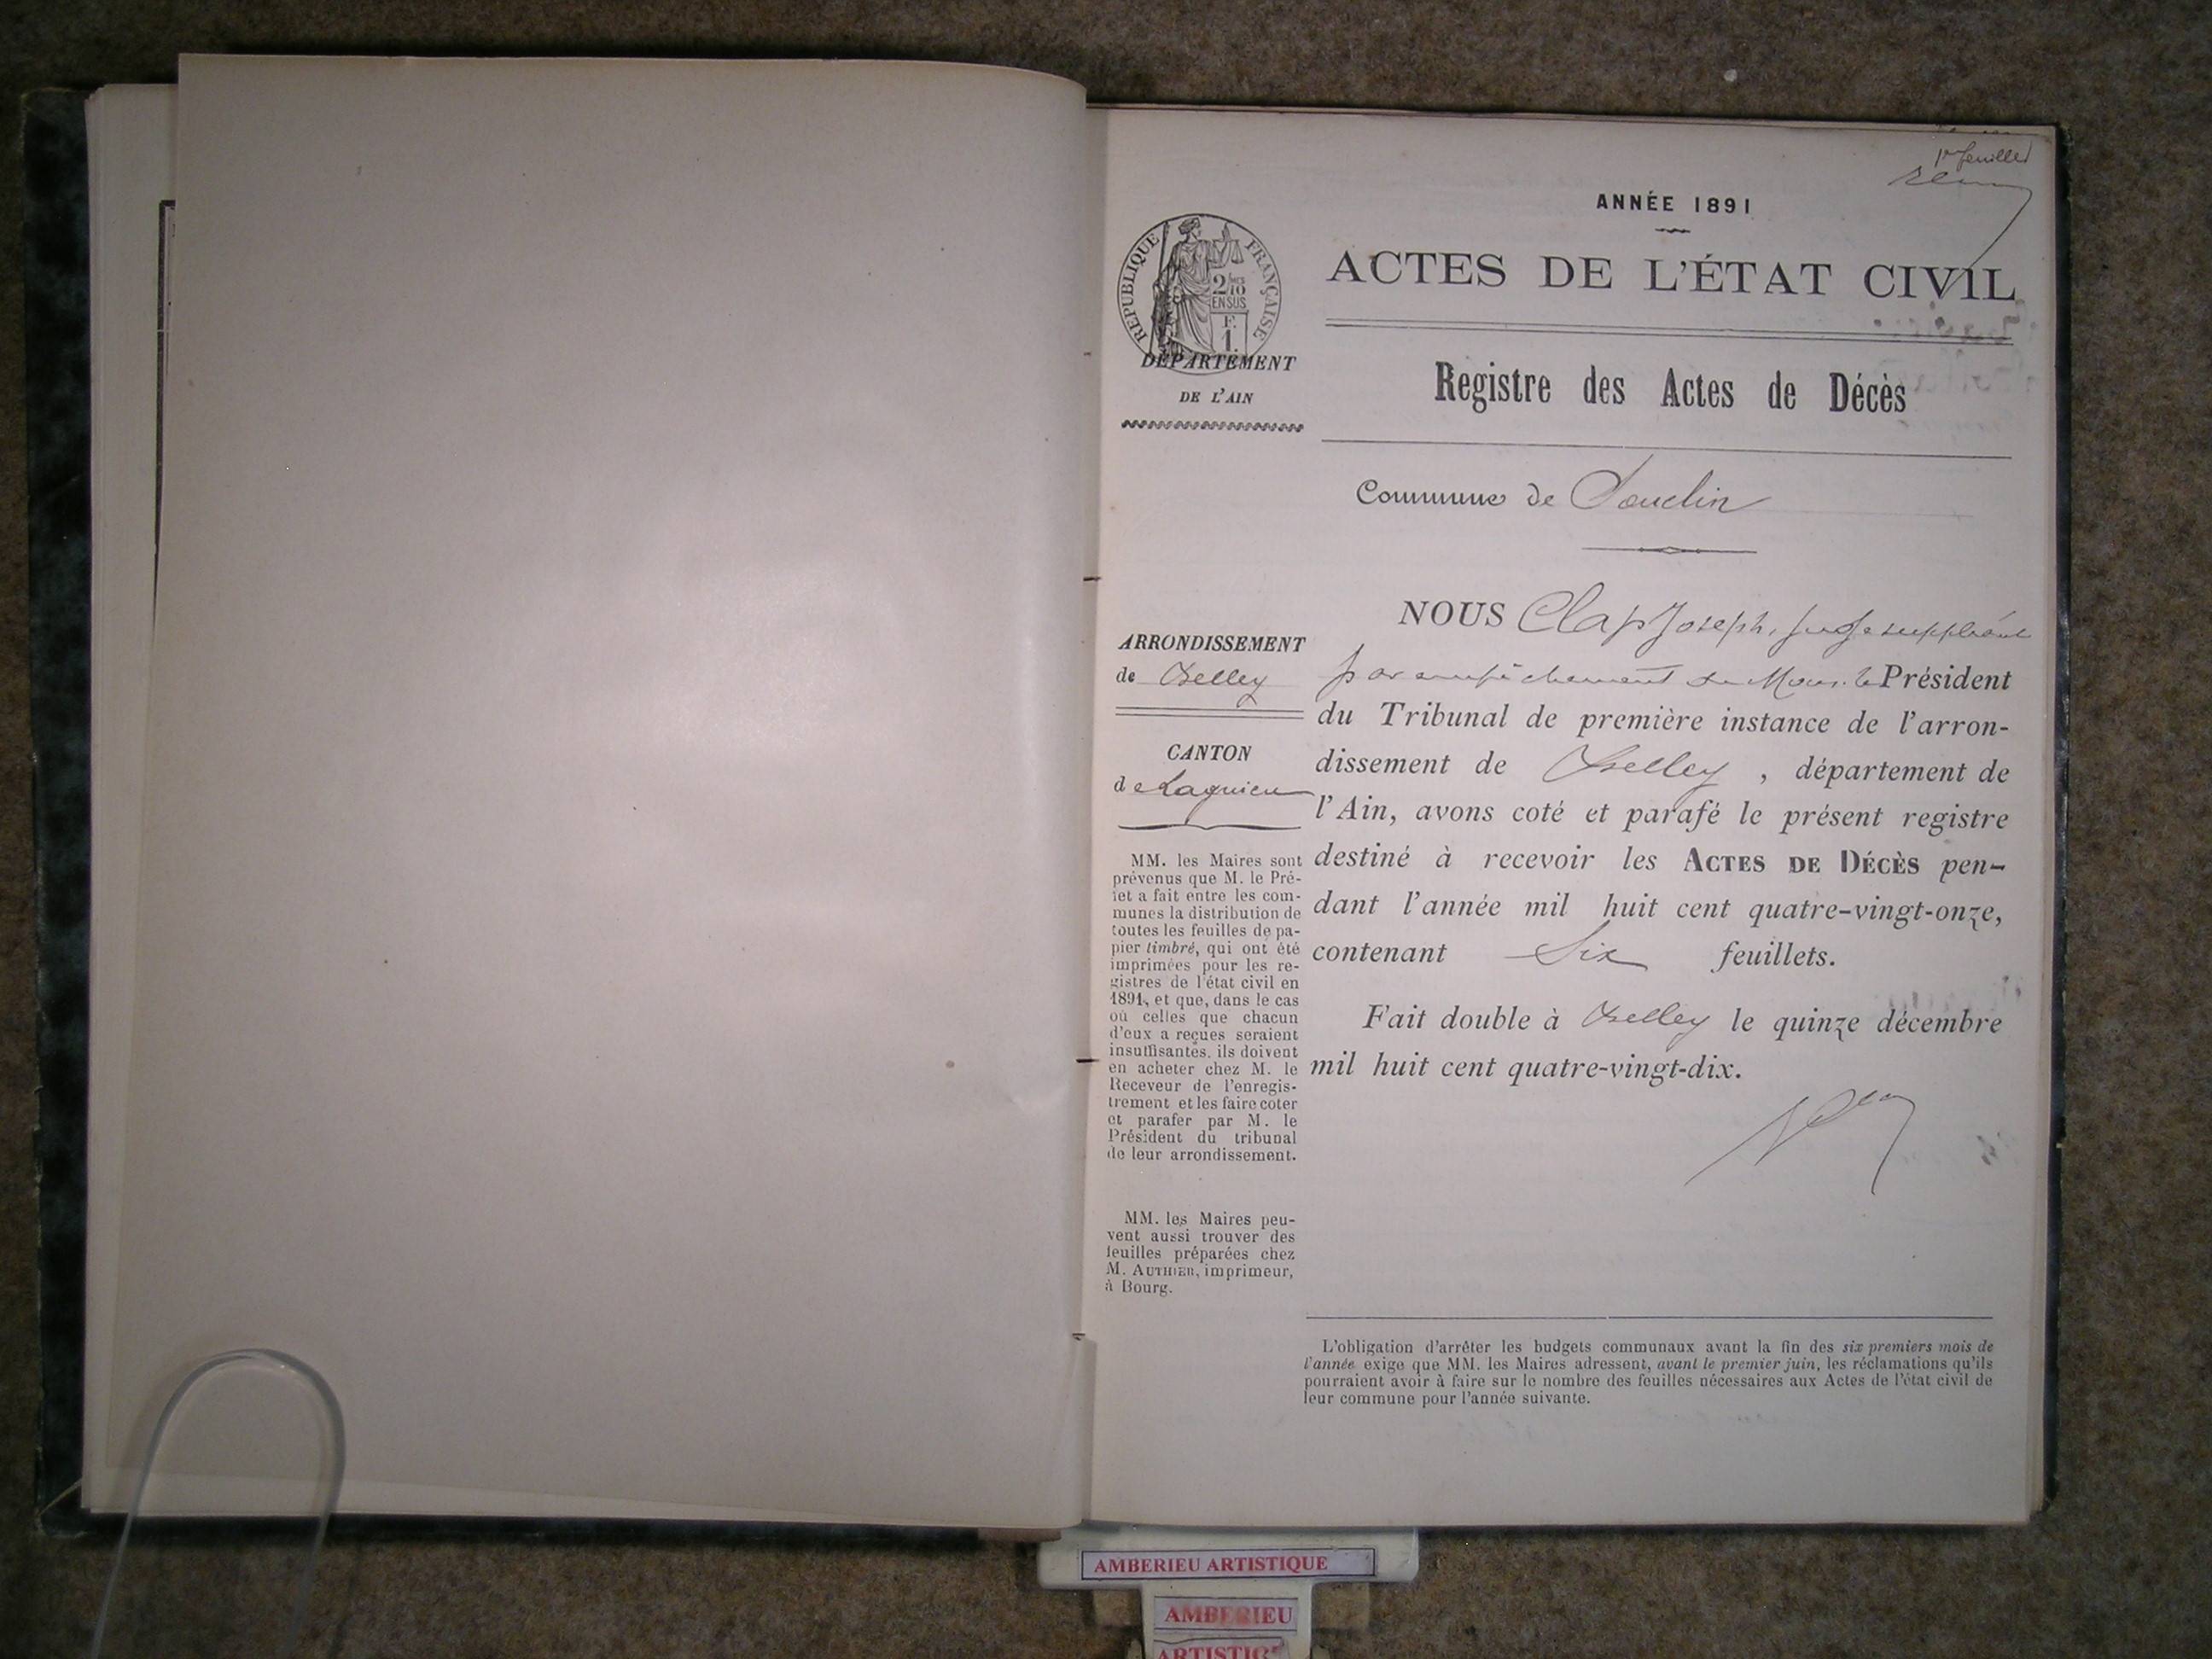 1er feuillet
ANNÉE 1891
ACTES DE L'ÉTAT CIVIL
RÉPUBLIQUE FRANÇAISE
2/10
EN SUS
F.
1.
DÉPARTEMENT
DE L'AIN
Registre des Actes de Décès
Commune de Souclin
ARRONDISSEMENT
de Belley
CANTON
de Lagnieu
MM. les Maires sont
prévenus que M. le Pré-
fet a fait entre les com-
munes la distribution de
toutes les feuilles de pa-
pier timbré, qui ont été
imprimées pour les re-
gistres de l'état civil en
1891, et que, dans le cas
où celles que chacun
d'eux a reçues seraient
insuffisantes, ils doivent
en acheter chez M. le
Receveur de l'enregis-
trement et les faire coter
et parafer par M. le
Président du tribunal
de leur arrondissement.
MM. les Maires peu-
vent aussi trouver des
feuilles préparées chez
M. AUTHIER, imprimeur,
à Bourg.
NOUS Clap Joseph, juge suppléant
par empêchement de Mons. le Président
du Tribunal de première instance de l'arron-
dissement de Belley, département de
l'Ain, avons coté et parafé le présent registre
destiné à recevoir les ACTES DE DÉCÈS pen-
dant l'année mil huit cent quatre-vingt-onze,
contenant Six feuillets.
Fait double à Belley le quinze décembre
mil huit cent quatre-vingt-dix.
L'obligation d'arrêter les budgets communaux avant la fin des six premiers mois de
l'année exige que MM. les Maires adressent, avant le premier juin, les réclamations qu'ils
pourraient avoir à faire sur le nombre des feuilles nécessaires aux Actes de l'état civil de
leur commune pour l'année suivante.
AMBERIEU ARTISTIQUE
AMBERIEU
ARTISTIQUE